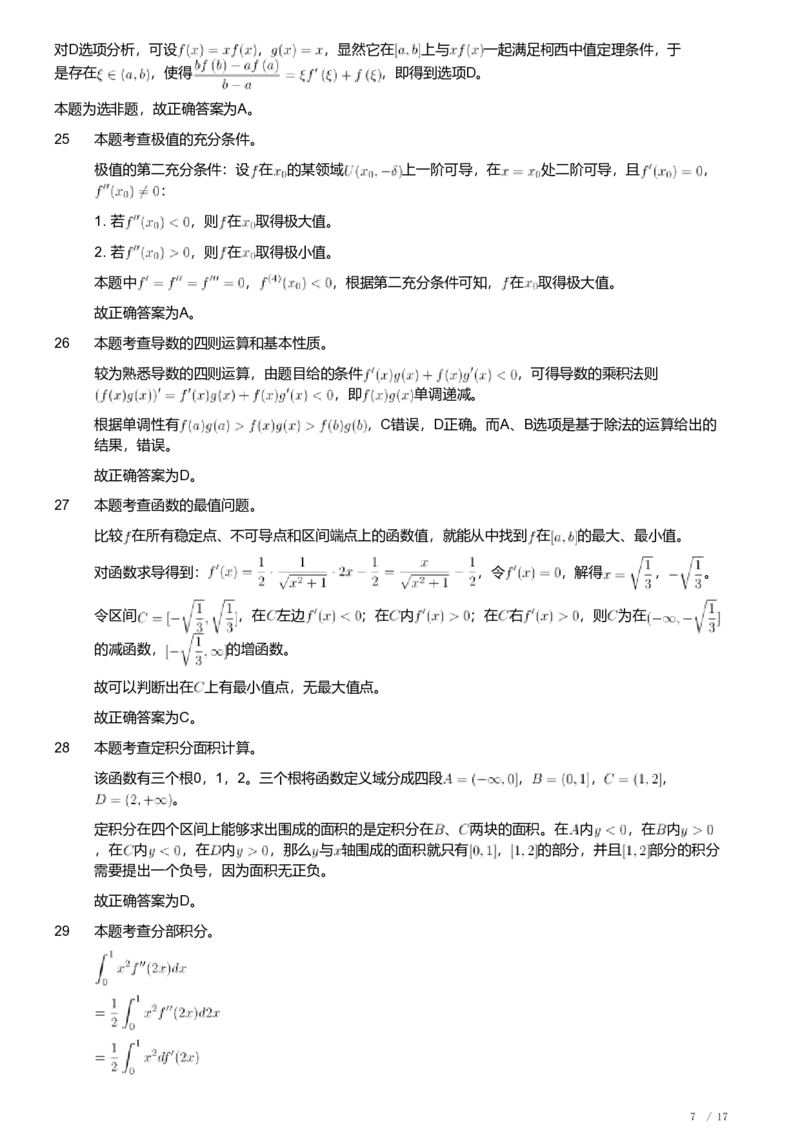 对D选项分析，可设f(x) = xf(x)，g(x) = x，显然它在[a, b]上与xf(x)一起满足柯西中值定理条件，于
是存在ξ ∈ (a, b)，使得\frac{bf(b) − af(a)}{b − a} = ξf′(ξ) + f(ξ)，即得到选项D。
本题为选非题，故正确答案为A。
25 本题考查极值的充分条件。
极值的第二充分条件：设f在x₀的某领域U(x₀, −δ)上一阶可导，在x = x₀处二阶可导，且f′(x₀) = 0，
f″(x₀) ≠ 0：
1. 若f″(x₀) < 0，则f在x₀取得极大值。
2. 若f″(x₀) > 0，则f在x₀取得极小值。
本题中f′ = f″ = f‴ = 0，f⁽⁴⁾(x₀) < 0，根据第二充分条件可知，f在x₀取得极大值。
故正确答案为A。
26 本题考查导数的四则运算和基本性质。
较为熟悉导数的四则运算，由题目给的条件f′(x)g(x) + f(x)g′(x) < 0，可得导数的乘积法则
(f(x)g(x))′ = f′(x)g(x) + f(x)g′(x) < 0，即f(x)g(x)单调递减。
根据单调性有f(a)g(a) > f(x)g(x) > f(b)g(b)，C错误，D正确。而A、B选项是基于除法的运算给出的
结果，错误。
故正确答案为D。
27 本题考查函数的最值问题。
比较f在所有稳定点、不可导点和区间端点上的函数值，就能从中找到f在[a, b]的最大、最小值。
对函数求导得到：f′(x) = \frac{1}{2} · \frac{1}{\sqrt{x² + 1}} · 2x − \frac{1}{2} = \frac{x}{\sqrt{x² + 1}} − \frac{1}{2}，令f′(x) = 0，解得x = \sqrt{\frac{1}{3}}，−\sqrt{\frac{1}{3}}。
令区间C = [−\sqrt{\frac{1}{3}}, \sqrt{\frac{1}{3}}]，在C左边f′(x) < 0；在C内f′(x) > 0；在C右f′(x) > 0，则C为在(−∞, −\sqrt{\frac{1}{3}}]
的减函数，[−\sqrt{\frac{1}{3}}, ∞]的增函数。
故可以判断出在C上有最小值点，无最大值点。
故正确答案为C。
28 本题考查定积分面积计算。
该函数有三个根0，1，2。三个根将函数定义域分成四段A = (−∞, 0]，B = (0, 1]，C = (1, 2]，
D = (2, +∞)。
定积分在四个区间上能够求出围成的面积的是定积分在B、C两块的面积。在A内y < 0，在B内y > 0
，在C内y < 0，在D内y > 0，那么y与x轴围成的面积就只有[0, 1]，[1, 2]的部分，并且[1, 2]部分的积分
需要提出一个负号，因为面积无正负。
故正确答案为D。
29 本题考查分部积分。
\int_0^1 x²f″(2x)dx
= \frac{1}{2} \int_0^1 x²f″(2x)d2x
= \frac{1}{2} \int_0^1 x²df′(2x)
7 / 17